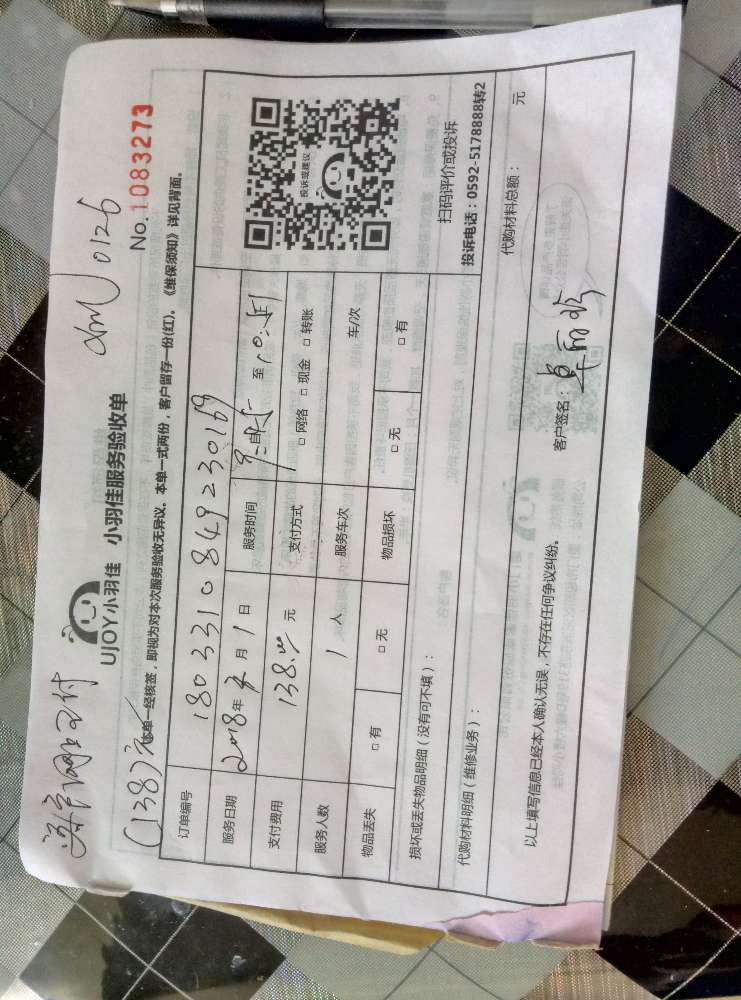 0126
(138)元
UJOY小羽佳 小羽佳服务验收单
No.1083273
本单一经核签，即视为对本次服务验收无异议。本单一式两份，客户留存一份(红)。《维保须知》详见背面。
订单编号 1803310849230169
服务日期 2018年 月1日 服务时间 至
支付费用 138.00元 支付方式 □网络 □现金 □转账
服务人数 1人 服务车次 车/次
物品丢失 □有 □无 物品损坏 □无 □有
投诉或建议
扫码评价或投诉
投诉电话：0592-5178888转2
损坏或丢失物品明细（没有可不填）：
代购材料明细（维修业务）：
代购材料总额： 元
以上填写信息已经本人确认无误，不存在任何争议纠纷。
客户签名：